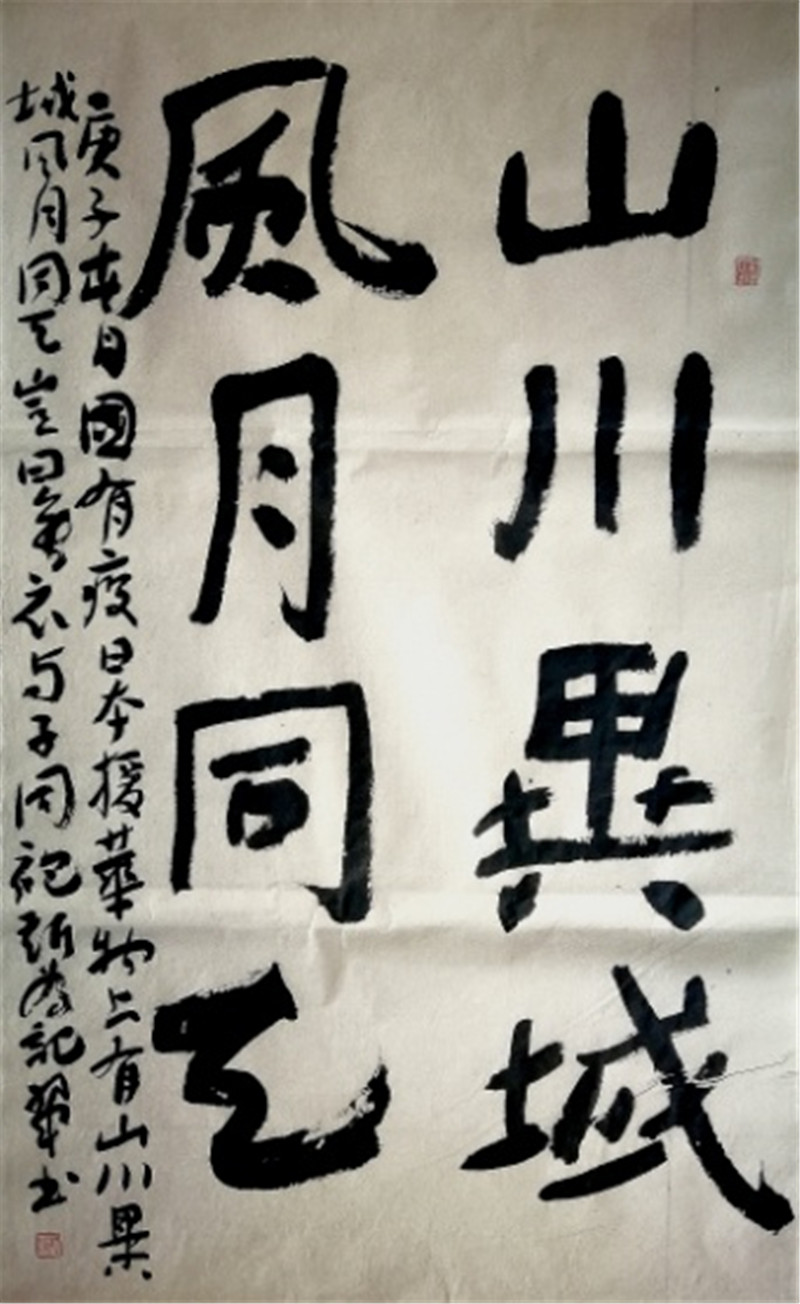 山川異域
風月同天
庚子春日國有疫日本援華物上有山川異
域風月同天豈曰無衣与子同袍 記 书